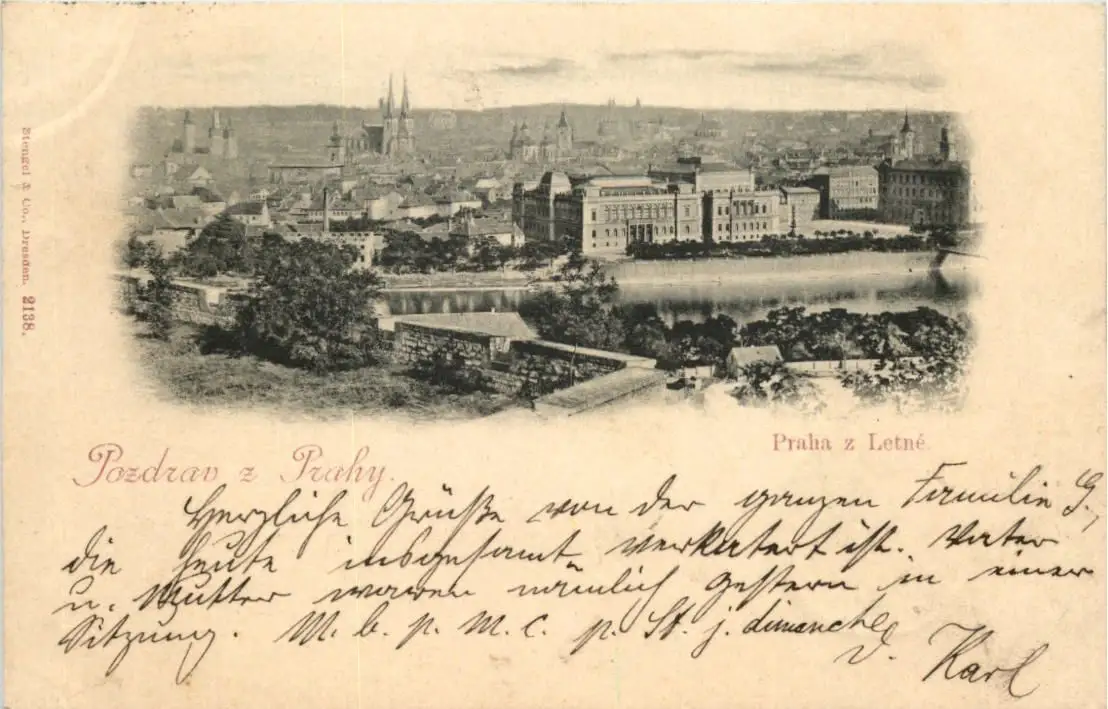 Stengel & Co., Dresden. 2138.
Praha z Letné.
Pozdrav z Prahy.
Herzliche Grüße von der ganzen Familie G.,
die heute insgesamt verkatert ist. Vater
u. Mutter waren nämlich gestern in einer
Sitzung. M. b. p. M. C. p. St. j. dimanche
d. Karl